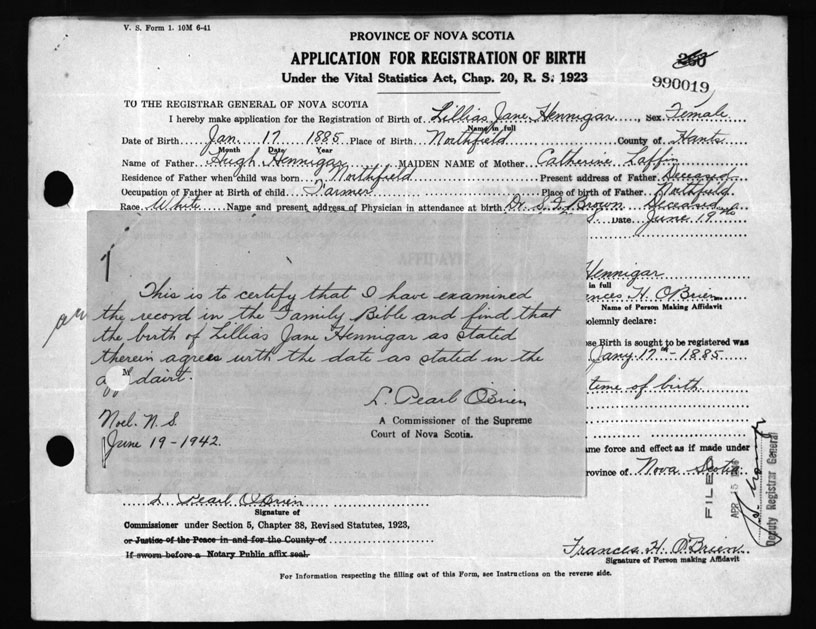 V. S. Form 1. 10M 6-41
PROVINCE OF NOVA SCOTIA
APPLICATION FOR REGISTRATION OF BIRTH
Under the Vital Statistics Act, Chap. 20, R. S. 1923
990019
TO THE REGISTRAR GENERAL OF NOVA SCOTIA
I hereby make application for the Registration of Birth of Lillias Jane Hennigar, Sex Female
Name in full
Date of Birth Jan 17 1885 Place of Birth Northfield County of Hants
Month Date Year
Name of Father Hennigar MAIDEN NAME of Mother Catherine Laffin
Residence of Father when child was born Northfield Present address of Father Deceased
Occupation of Father at Birth of child Farmer Place of birth of Father Northfield
Race White Name and present address of Physician in attendance at birth Dr. Brown Deceased
Date June 19
Hennigar
in full
nces H. O'Brien
Name of Person Making Affidavit
olemnly declare:
ose Birth is sought to be registered was
Jany 17th - 1885
time of birth
me force and effect as if made under
rovince of Nova Scotia
This is to certify that I have examined
the record in the Family Bible and find that
the birth of Lillias Jane Hennigar as stated
therein agrees with the date as stated in the
L. Pearl O'Brien
Noel. N. S.
A Commissioner of the Supreme
Court of Nova Scotia.
June 19 - 1942.
L. Pearl O'Brien
Signature of
Commissioner under Section 5, Chapter 38, Revised Statutes, 1923,
or Justice of the Peace in and for the County of
If sworn before a Notary Public affix seal.
Frances H. O'Brien
Signature of Person making Affidavit
FILED
APR 15
Deputy Registrar General
For Information respecting the filling out of this Form, see Instructions on the reverse side.